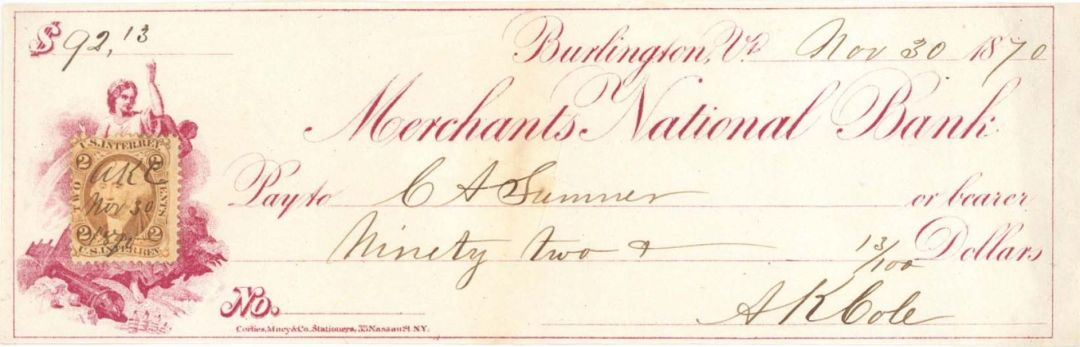 $ 92,13
Burlington, Vt. Nov 30 1870
Merchants National Bank.
U.S. INTER. REV.
2 2
AKC
TWO CENTS
Nov 30
1870
2 2
U.S. INTER. REV.
Pay to C A Sumner or bearer
Ninety two & 13/100 Dollars
No.
A K Cole
Corlies, Macy & Co. Stationers, 33 Nassau St. N.Y.